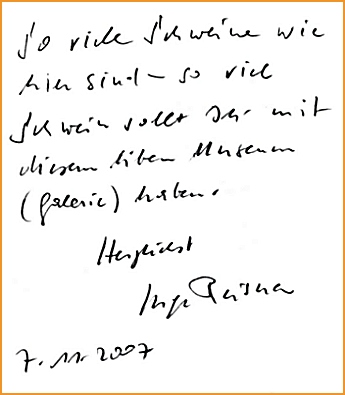 So viele Schweine wie
hier sind – so viel
Schwein sollt Ihr mit
diesem lieben Museum
(Galerie) haben.
Herzlichst
Inge
7. 11. 2007